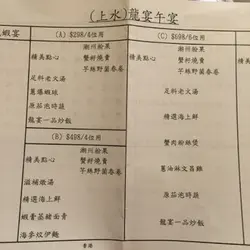 (上水)龍宴午宴
蝦宴
(A) $298/4位用
精美點心
潮州粉果
蟹籽燒賣
芋絲野菌春卷
足料老火湯
原茄泡時蔬
龍宴一品炒飯
(B) $498/4位用
精美點心
潮州粉果
蟹籽燒賣
芋絲野菌春卷
滋補燉湯
精選海上鮮
海參炆伊麵
(C) $698/6位用
精美點心
潮州粉果
蟹籽燒賣
芋絲野菌春卷
足料老火湯
精選海上鮮
蟹肉粉絲煲
蔥油麻文昌雞
原茄泡時蔬
龍宴一品炒飯